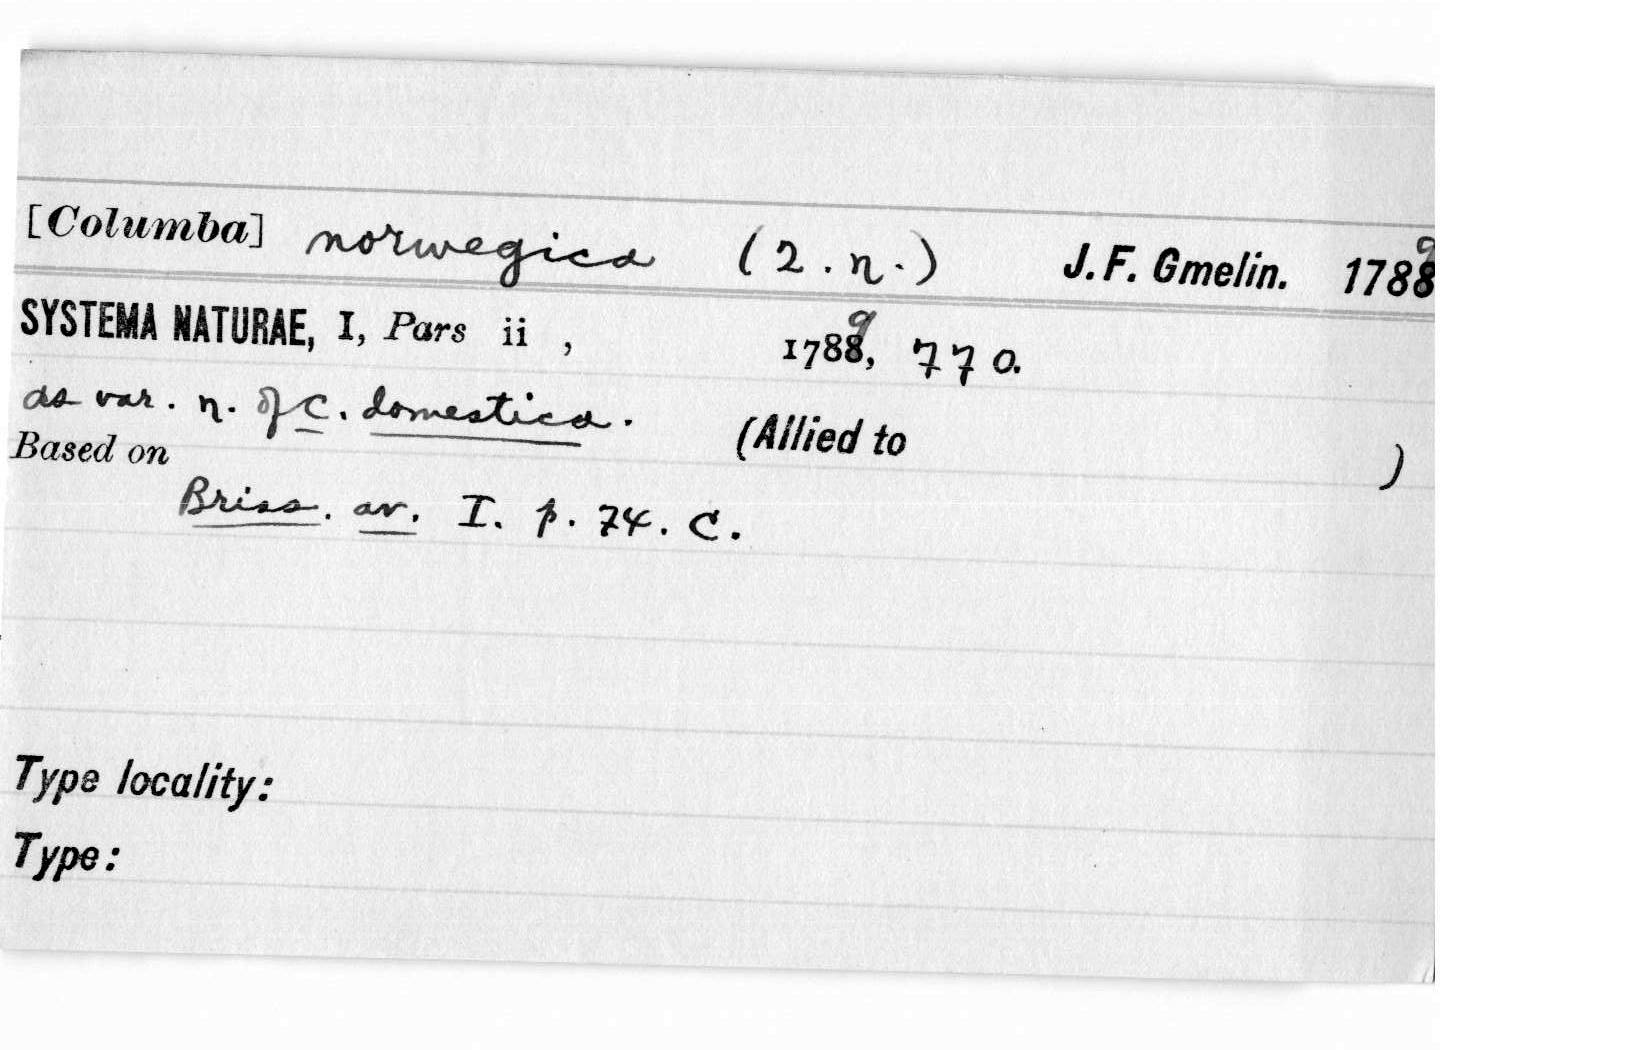 [Columba] norwegica (2.n.) J. F. Gmelin. 1789
SYSTEMA NATURAE, I, Pars ii , 1789, 770.
as var. n. of C. domestica. (Allied to )
Based on
Briss. av. I. p. 74. C.
Type locality:
Type: